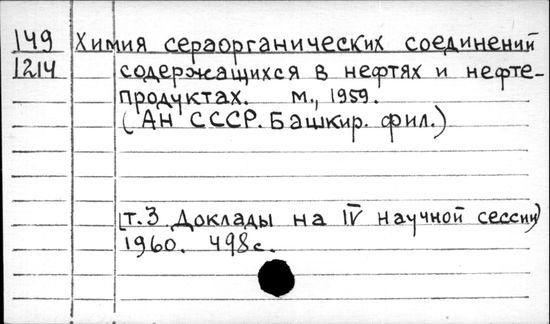 149 Химия сераорганических соединений
1214 содержащихся в нефтях и нефте-
продуктах. м., 1959.
(АН СССР. Башкир. фил.)
[т.3 Доклады на IV научной сессии)
1960. 498с.